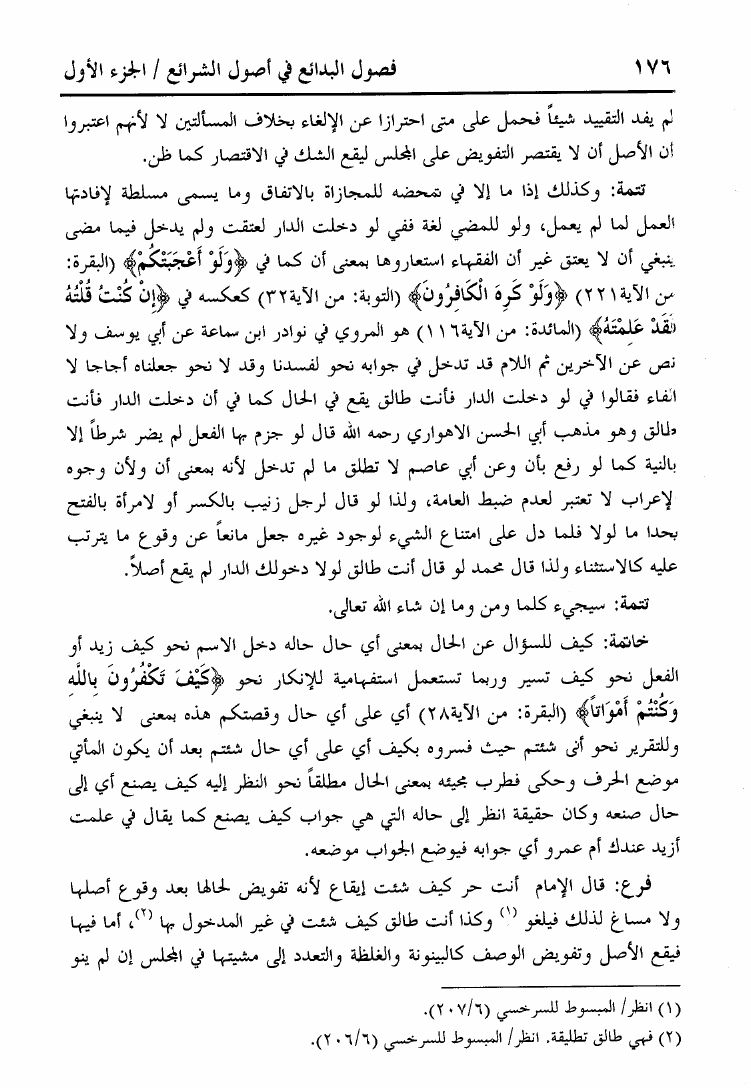 ١٧٦ فصول البدائع في أصول الشرائع / الجزء الأول
لم يفد التقييد شيئاً فحمل على متى احترازا عن الإلغاء بخلاف المسألتين لا لأنهم اعتبروا
أن الأصل أن لا يقتصر التفويض على المجلس ليقع الشك في الاقتصار كما ظن.
تتمة: وكذلك إذا ما إلا في تمحضه للمجازاة بالاتفاق وما يسمى مسلطة لإفادتها
العمل لما لم يعمل، ولو للمضي لغة ففي لو دخلت الدار لعتقت ولم يدخل فيما مضى
ينبغي أن لا يعتق غير أن الفقهاء استعاروها بمعنى أن كما في ﴿وَلَوْ أَعْجَبَتْكُمْ﴾ (البقرة:
من الآية٢٢١) ﴿وَلَوْ كَرِهَ الْكَافِرُونَ﴾ (التوبة: من الآية٣٢) كعكسه في ﴿إِنْ كُنْتُ قُلْتُهُ
فَقَدْ عَلِمْتَهُ﴾ (المائدة: من الآية١١٦) هو المروي في نوادر ابن سماعة عن أبي يوسف ولا
نص عن الآخرين ثم اللام قد تدخل في جوابه نحو لفسدنا وقد لا نحو جعلناه أجاجا لا
الفاء فقالوا في لو دخلت الدار فأنت طالق يقع في الحال كما في أن دخلت الدار فأنت
طالق وهو مذهب أبي الحسن الاهواري رحمه الله قال لو جزم بها الفعل لم يضر شرطاً إلا
بالنية كما لو رفع بأن وعن أبي عاصم لا تطلق ما لم تدخل لأنه بمعنى أن ولأن وجوه
لإعراب لا تعتبر لعدم ضبط العامة، ولذا لو قال لرجل زنيب بالكسر أو لامرأة بالفتح
بحدا ما لولا فلما دل على امتناع الشيء لوجود غيره جعل مانعاً عن وقوع ما يترتب
عليه كالاستثناء ولذا قال محمد لو قال أنت طالق لولا دخولك الدار لم يقع أصلاً.
تتمة: سيجيء كلما ومن وما إن شاء الله تعالى.
خاتمة: كيف للسؤال عن الحال بمعنى أي حال حاله دخل الاسم نحو كيف زيد أو
الفعل نحو كيف تسير وربما تستعمل استفهامية للإنكار نحو ﴿كَيْفَ تَكْفُرُونَ بِاللَّهِ
وَكُنْتُمْ أَمْوَاتاً﴾ (البقرة: من الآية٢٨) أي على أي حال وقصتكم هذه بمعنى لا ينبغي
وللتقرير نحو أنى شئتم حيث فسروه بكيف أي على أي حال شئتم بعد أن يكون المأتي
موضع الحرف وحكى قطرب مجيئه بمعنى الحال مطلقاً نحو النظر إليه كيف يصنع أي إلى
حال صنعه وكان حقيقة انظر إلى حاله التي هي جواب كيف يصنع كما يقال في علمت
أزيد عندك أم عمرو أي جوابه فيوضع الجواب موضعه.
فرع: قال الإمام أنت حر كيف شئت إيقاع لأنه تفويض لحالها بعد وقوع أصلها
ولا مساغ لذلك فيلغو (١) وكذا أنت طالق كيف شئت في غير المدخول بها (٢)، أما فيها
فيقع الأصل وتفويض الوصف كالبينونة والغلظة والتعدد إلى مشيتها في المجلس إن لم ينو
(١) انظر/ المبسوط للسرخسي (٢٠٧/٦).
(٢) فهي طالق تطليقة. انظر/ المبسوط للسرخسي (٢٠٦/٦).